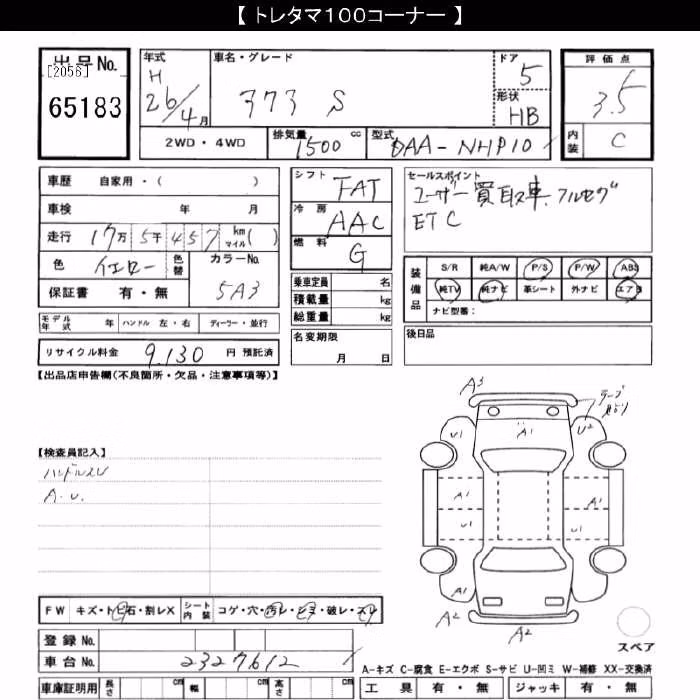 【 トレタマ100コーナー 】
出品No.
[2056]
65183
年式
H
26/4月
車名・グレード
373 S
ドア
5
形状
HB
2WD・4WD
排気量
1500 cc
型式
DAA-NHP10
評価点
3.5
内装
C
車歴 自家用・( )
車検 年 月
走行 17万 5千 4 5 7 km マイル( )
色 イエロー 色替 カラーNo. 5A3
保証書 有・無
モデル年式 年 ハンドル 左・右 ディーラー・並行
リサイクル料金 9,130 円 預託済
シフト FAT
冷房 AAC
燃料 G
乗車定員 名
積載量 kg
総重量 kg
名変期限
月 日
セールスポイント
ユーザー買取車、フルセグ
ETC
装備品
S/R 純A/W P/S P/W ABS
純TV 純ナビ 革シート 外ナビ エアB
ナビ型番:
後日品
【出品店申告欄(不良箇所・欠品・注意事項等)】
【検査員記入】
ハンドルスレ
A.U.
A3
テープ貼り
U1
A1
U2
A1
A1
U1
U1
A1
A1
A2
A2
スペア
FW キズ・トビ石・割レX
シート内装 コゲ・穴・汚レ・シミ・破レ・スレ
登録No.
車台No. 2327612
車庫証明用 長さ cm 幅 cm 高さ cm
A-キズ C-腐食 E-エクボ S-サビ U-凹ミ W-補修 XX-交換済
工具 有・無 ジャッキ 有・無